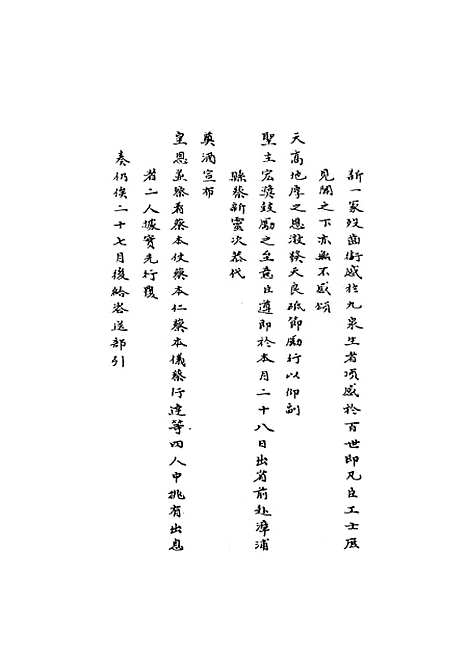 新一家歿固銜感於九泉生者頂感於百世即凡臣工士庶
見聞之下亦無不感頌
天高地厚之恩激發天良砥節勵行以仰副
聖主宏獎鼓勵之至意臣遵即於本月二十八日出省前赴漳浦
縣蔡新靈次恭代
奠酒宣布
皇恩並察看蔡本俊蔡本仁蔡本儀蔡行達等四人中挑有出息
者二人據實先行覆
奏仍俟二十七月後給咨送部引